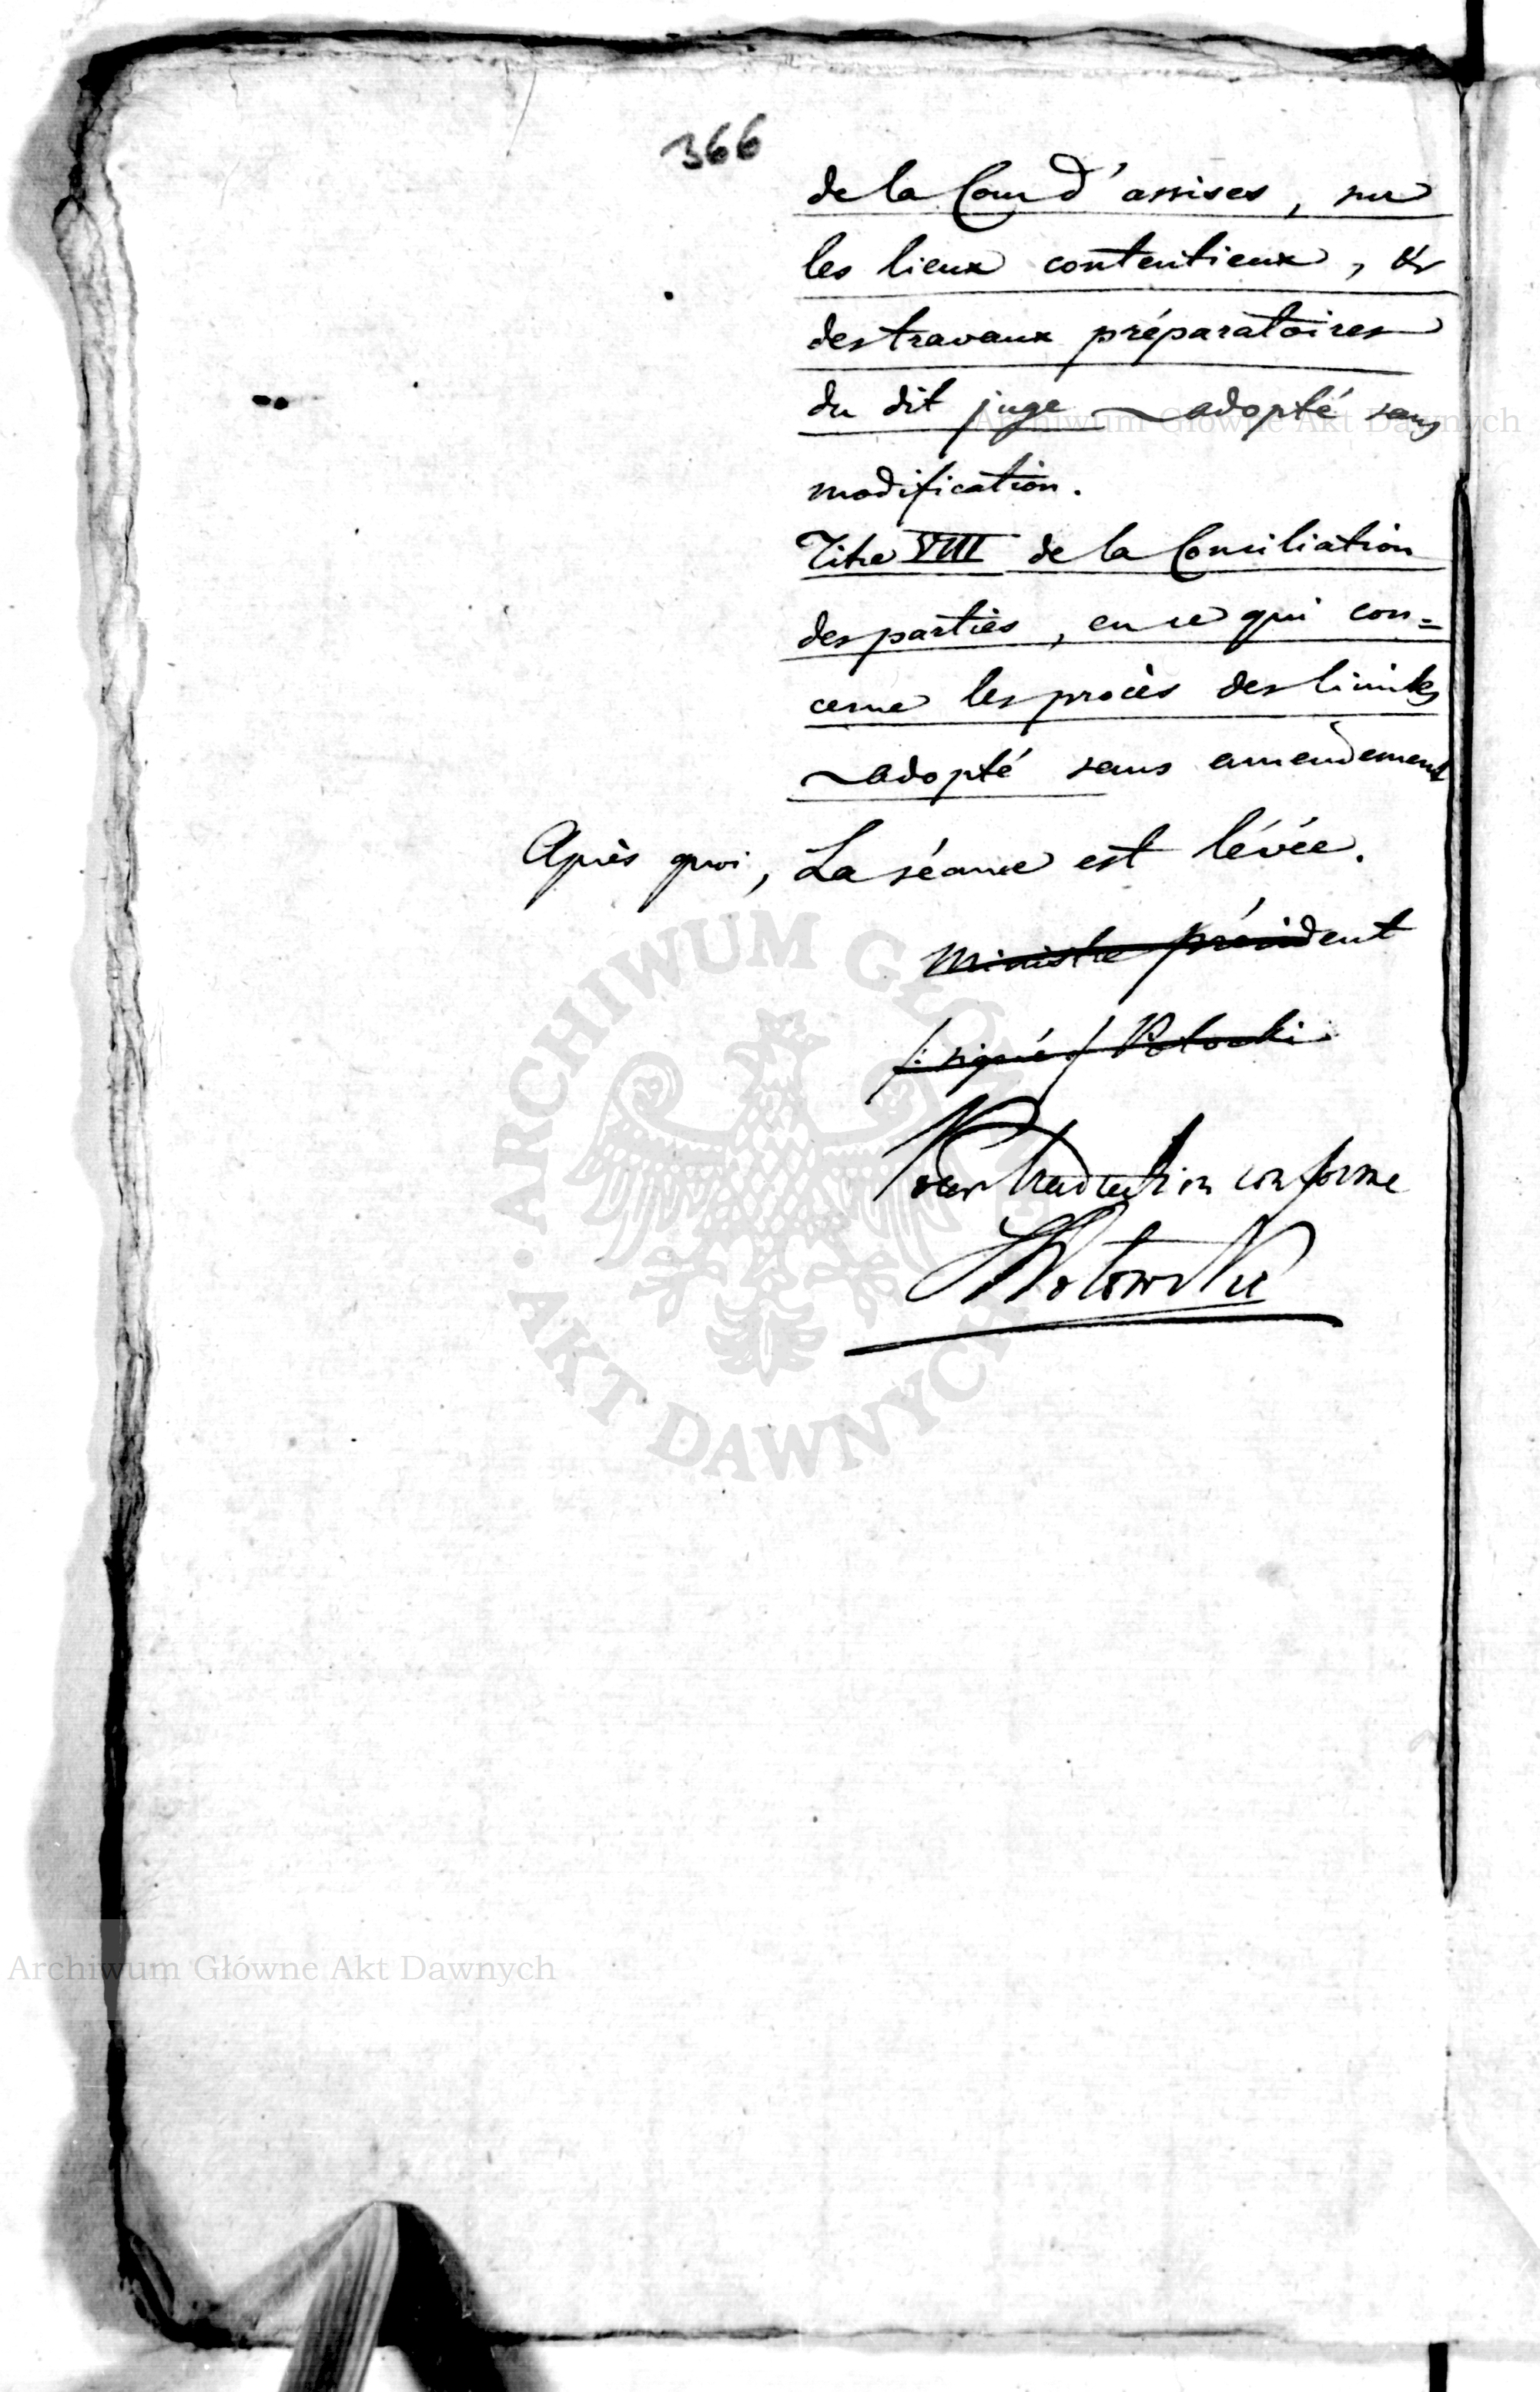 366
de la Cour d'assises, sur
les lieux contentieux, &
des travaux préparatoires
du dit juge ~ adopté sans
modification.
Titre VIII de la Conciliation
des parties, en ce qui con=
cerne les procès des limites
~ adopté sans amendement
Après quoi, La séance est lévée.
Ministre président
/: signé :/ Potocki
Pour traduction conforme
ARCHIWUM GŁÓWNE AKT DAWNYCH
Archiwum Główne Akt Dawnych
Archiwum Główne Akt Dawnych